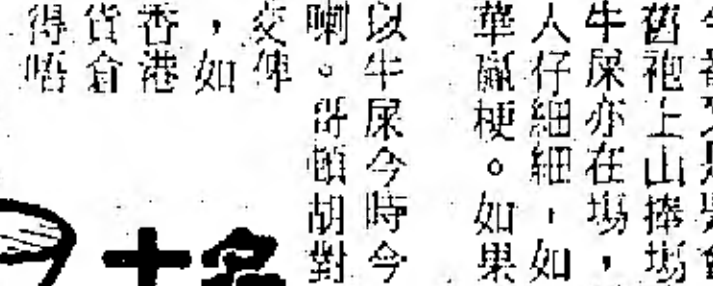 舊袍上山捧場
牛屎亦在場，
人仔細細，如
華贏梗。如果
以牛屎今時今
喇。哥頓胡對
交俾
，如
香港
貨倉
得唔
十名